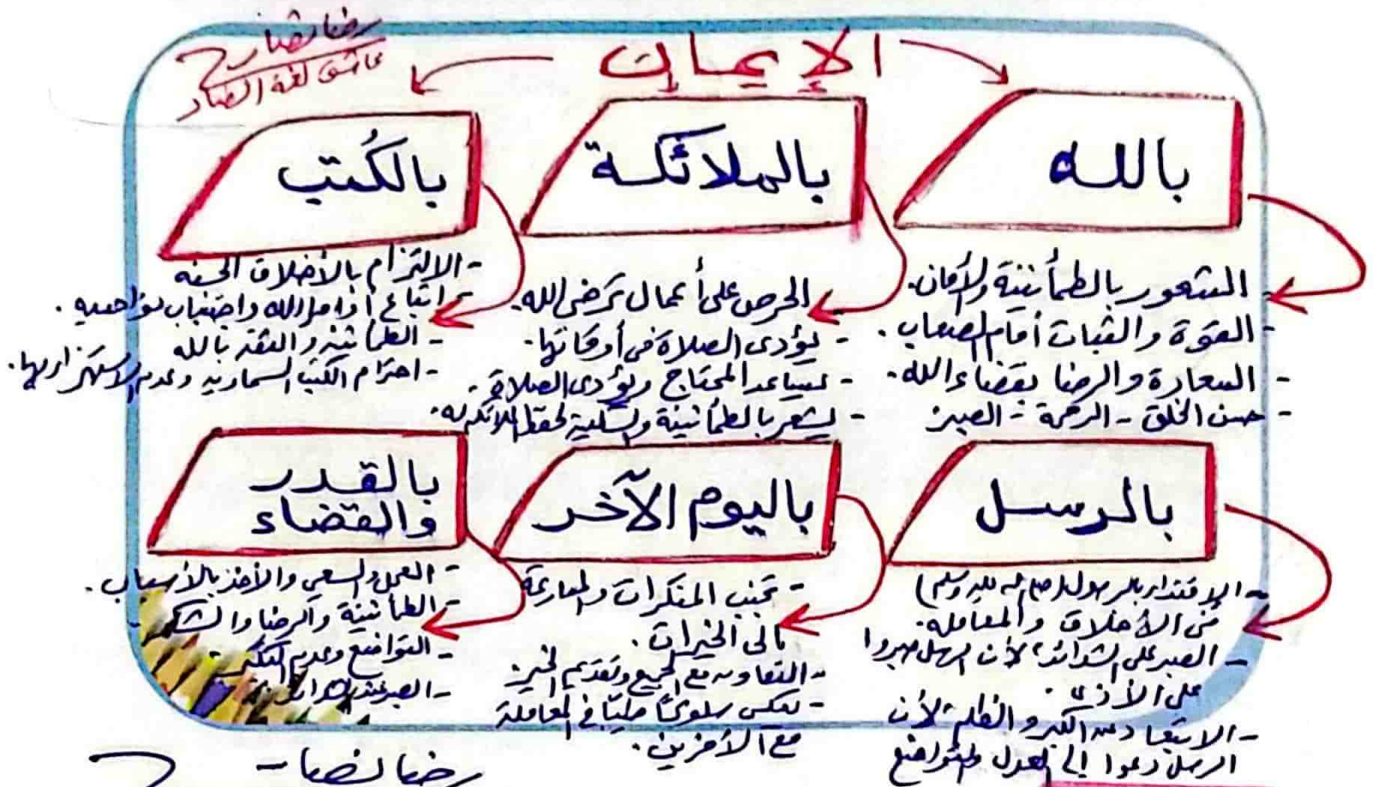 الإيمان
عاشق لغة الضاد
بالله
- الشعور بالطمأنينة والأمان.
- القوة والثبات أمام الصعاب.
- السعادة والرضا بقضاء الله.
- حسن الخلق - الرحمة - الصبر
بالملائكة
- الحرص على أعمال ترضى الله.
- يؤدى الصلاة فى أوقاتها.
- يساعد المحتاج ويؤدى الصلاة.
- يشعر بالطمأنينة والسكينة لحفظ الملائكة له.
بالكُتب
- الالتزام بالأخلاق الحسنه
- اتباع أوامر الله واجتناب نواهيه.
- الطمأنينة والثقة بالله
- احترام الكتب السماويه وعدم الاستهزاء بها.
بالرسل
- الاقتداء بالرسول (صلى الله عليه وسلم)
فى الأخلاق والمعامله.
- الصبر على الشدائد، لأن الرسل صبروا
على الأذى.
- الابتعاد عن الكبر والظلم لأن
الرسل دعوا إلى العدل والتواضع
باليوم الآخر
- تجنب المنكرات والمسارعة
إلى الخيرات.
- التعاون مع الجميع وتقديم الخير
- يعكس سلوكًا طيبًا فى المعاملة
مع الآخرين.
بالقدر
والقضاء
- العمل والسعي والأخذ بالأسباب.
- الطمأنينة والرضا والشكر
- التواضع وعدم التكبر
- الصبر عند